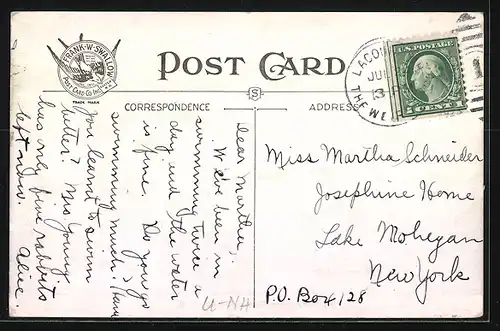 FRANK·W·SWALLOW
POST CARD CO. INC.
TRADE MARK
POST CARD
CORRESPONDENCE
ADDRESS
S
U.S. POSTAGE
1 CENT 1
THE WEIRS
Dear Martha,
We've been in
swimming twice a
day and the water
is fine. Do you go
swimming much? Have
you learnt to swim
better? Mrs Young
has one fine rabbits
left now. Alice.
Miss Martha Schneider
Josephine Home
Lake Mohegan
New York
P.O. Box 128
U-NH